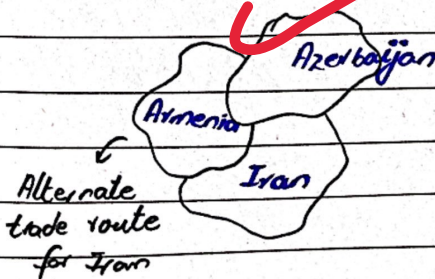 Azerbaijan
Armenia
Iran
Alternate
trade route
for Iran